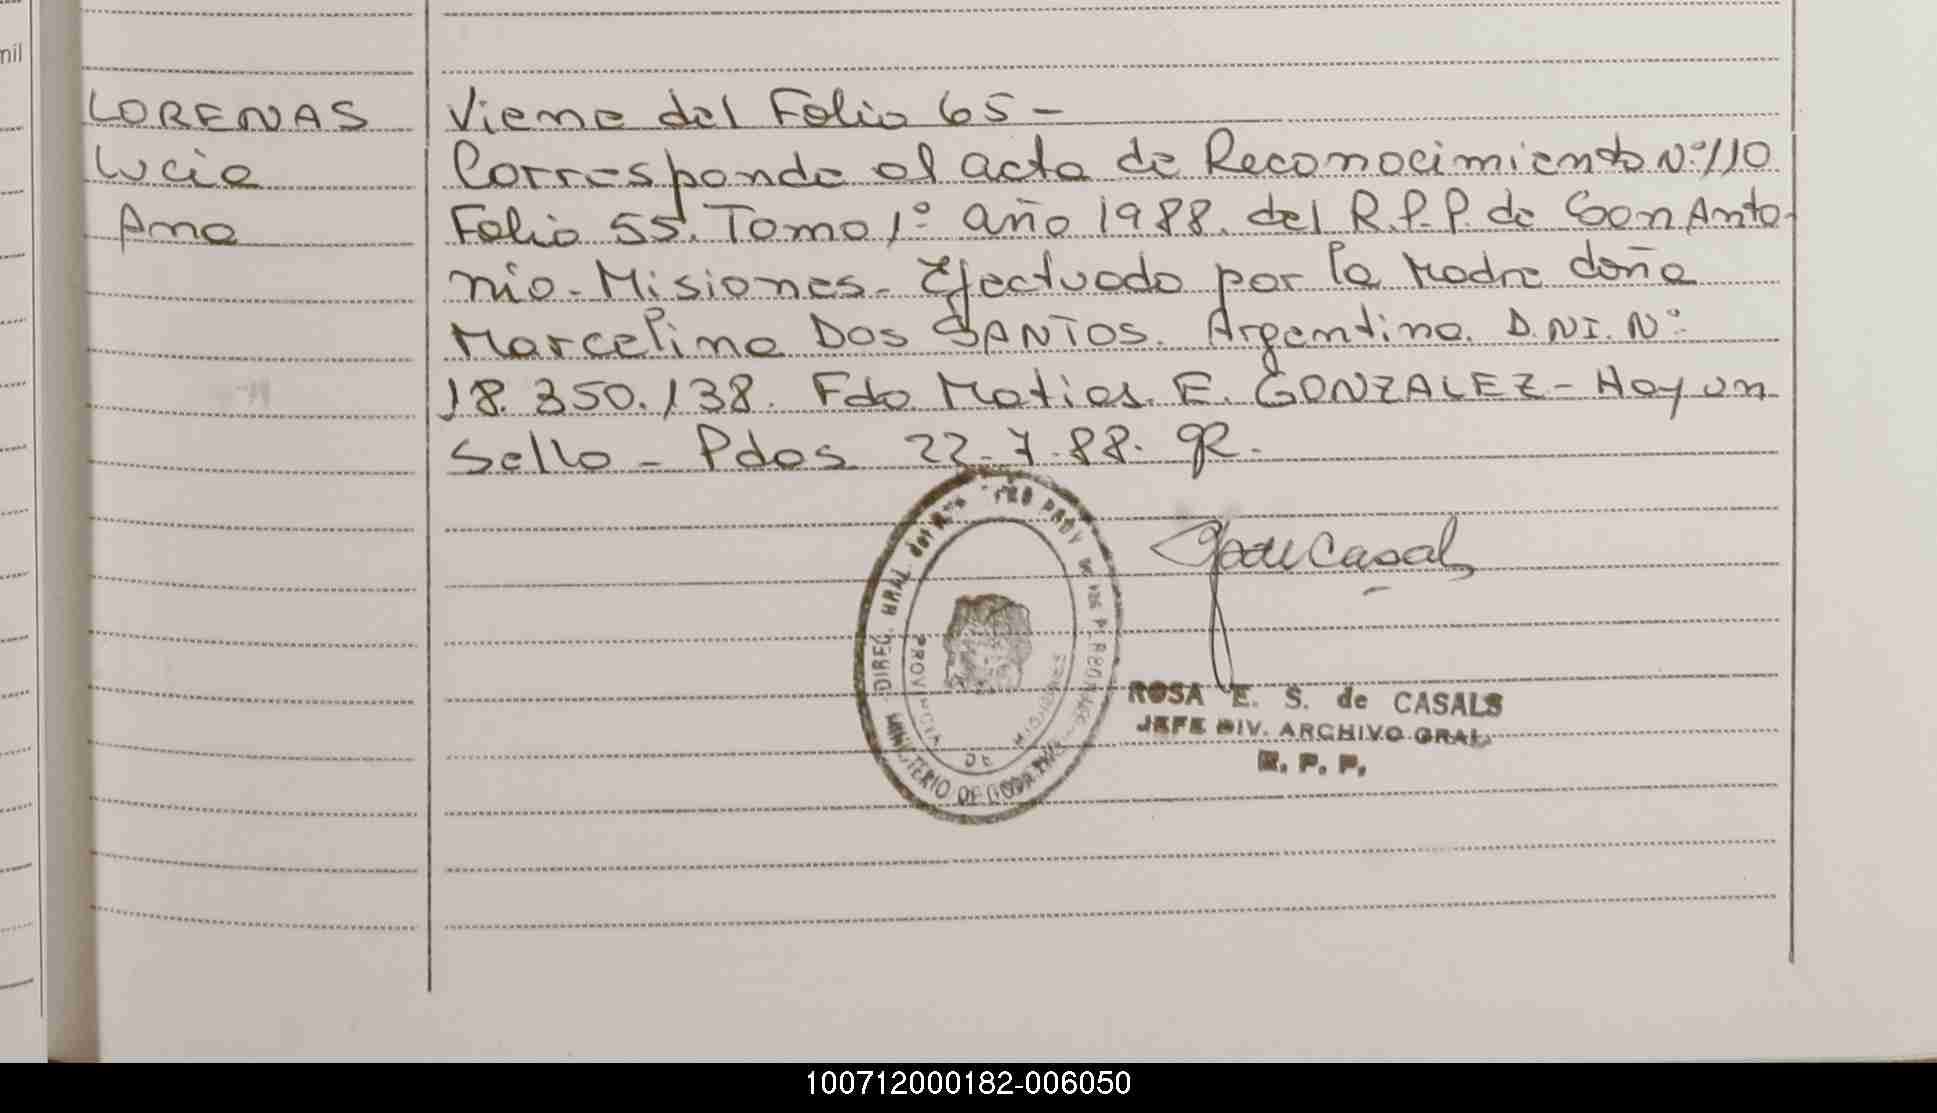 mil
LORENAS
Lucia
Ana
Viene del Folio 65 -
Corresponde al acta de Reconocimiento Nº 110
Folio 55. Tomo 1º año 1988. del R.P.P. de San Anto-
nio - Misiones - Efectuado por la Madre doña
Marcelina DOS SANTOS. Argentina. D.N.I. Nº
18.350.138. Fdo Matias. E. GONZALEZ - Hay un
Sello - Pdas 22.7.88.
DIREC. GRAL del
PROVINCIA DE MISIONES
MINISTERIO DE
ROSA E. S. de CASALS
JEFE DIV. ARCHIVO GRAL.
R. P. P.
100712000182-006050